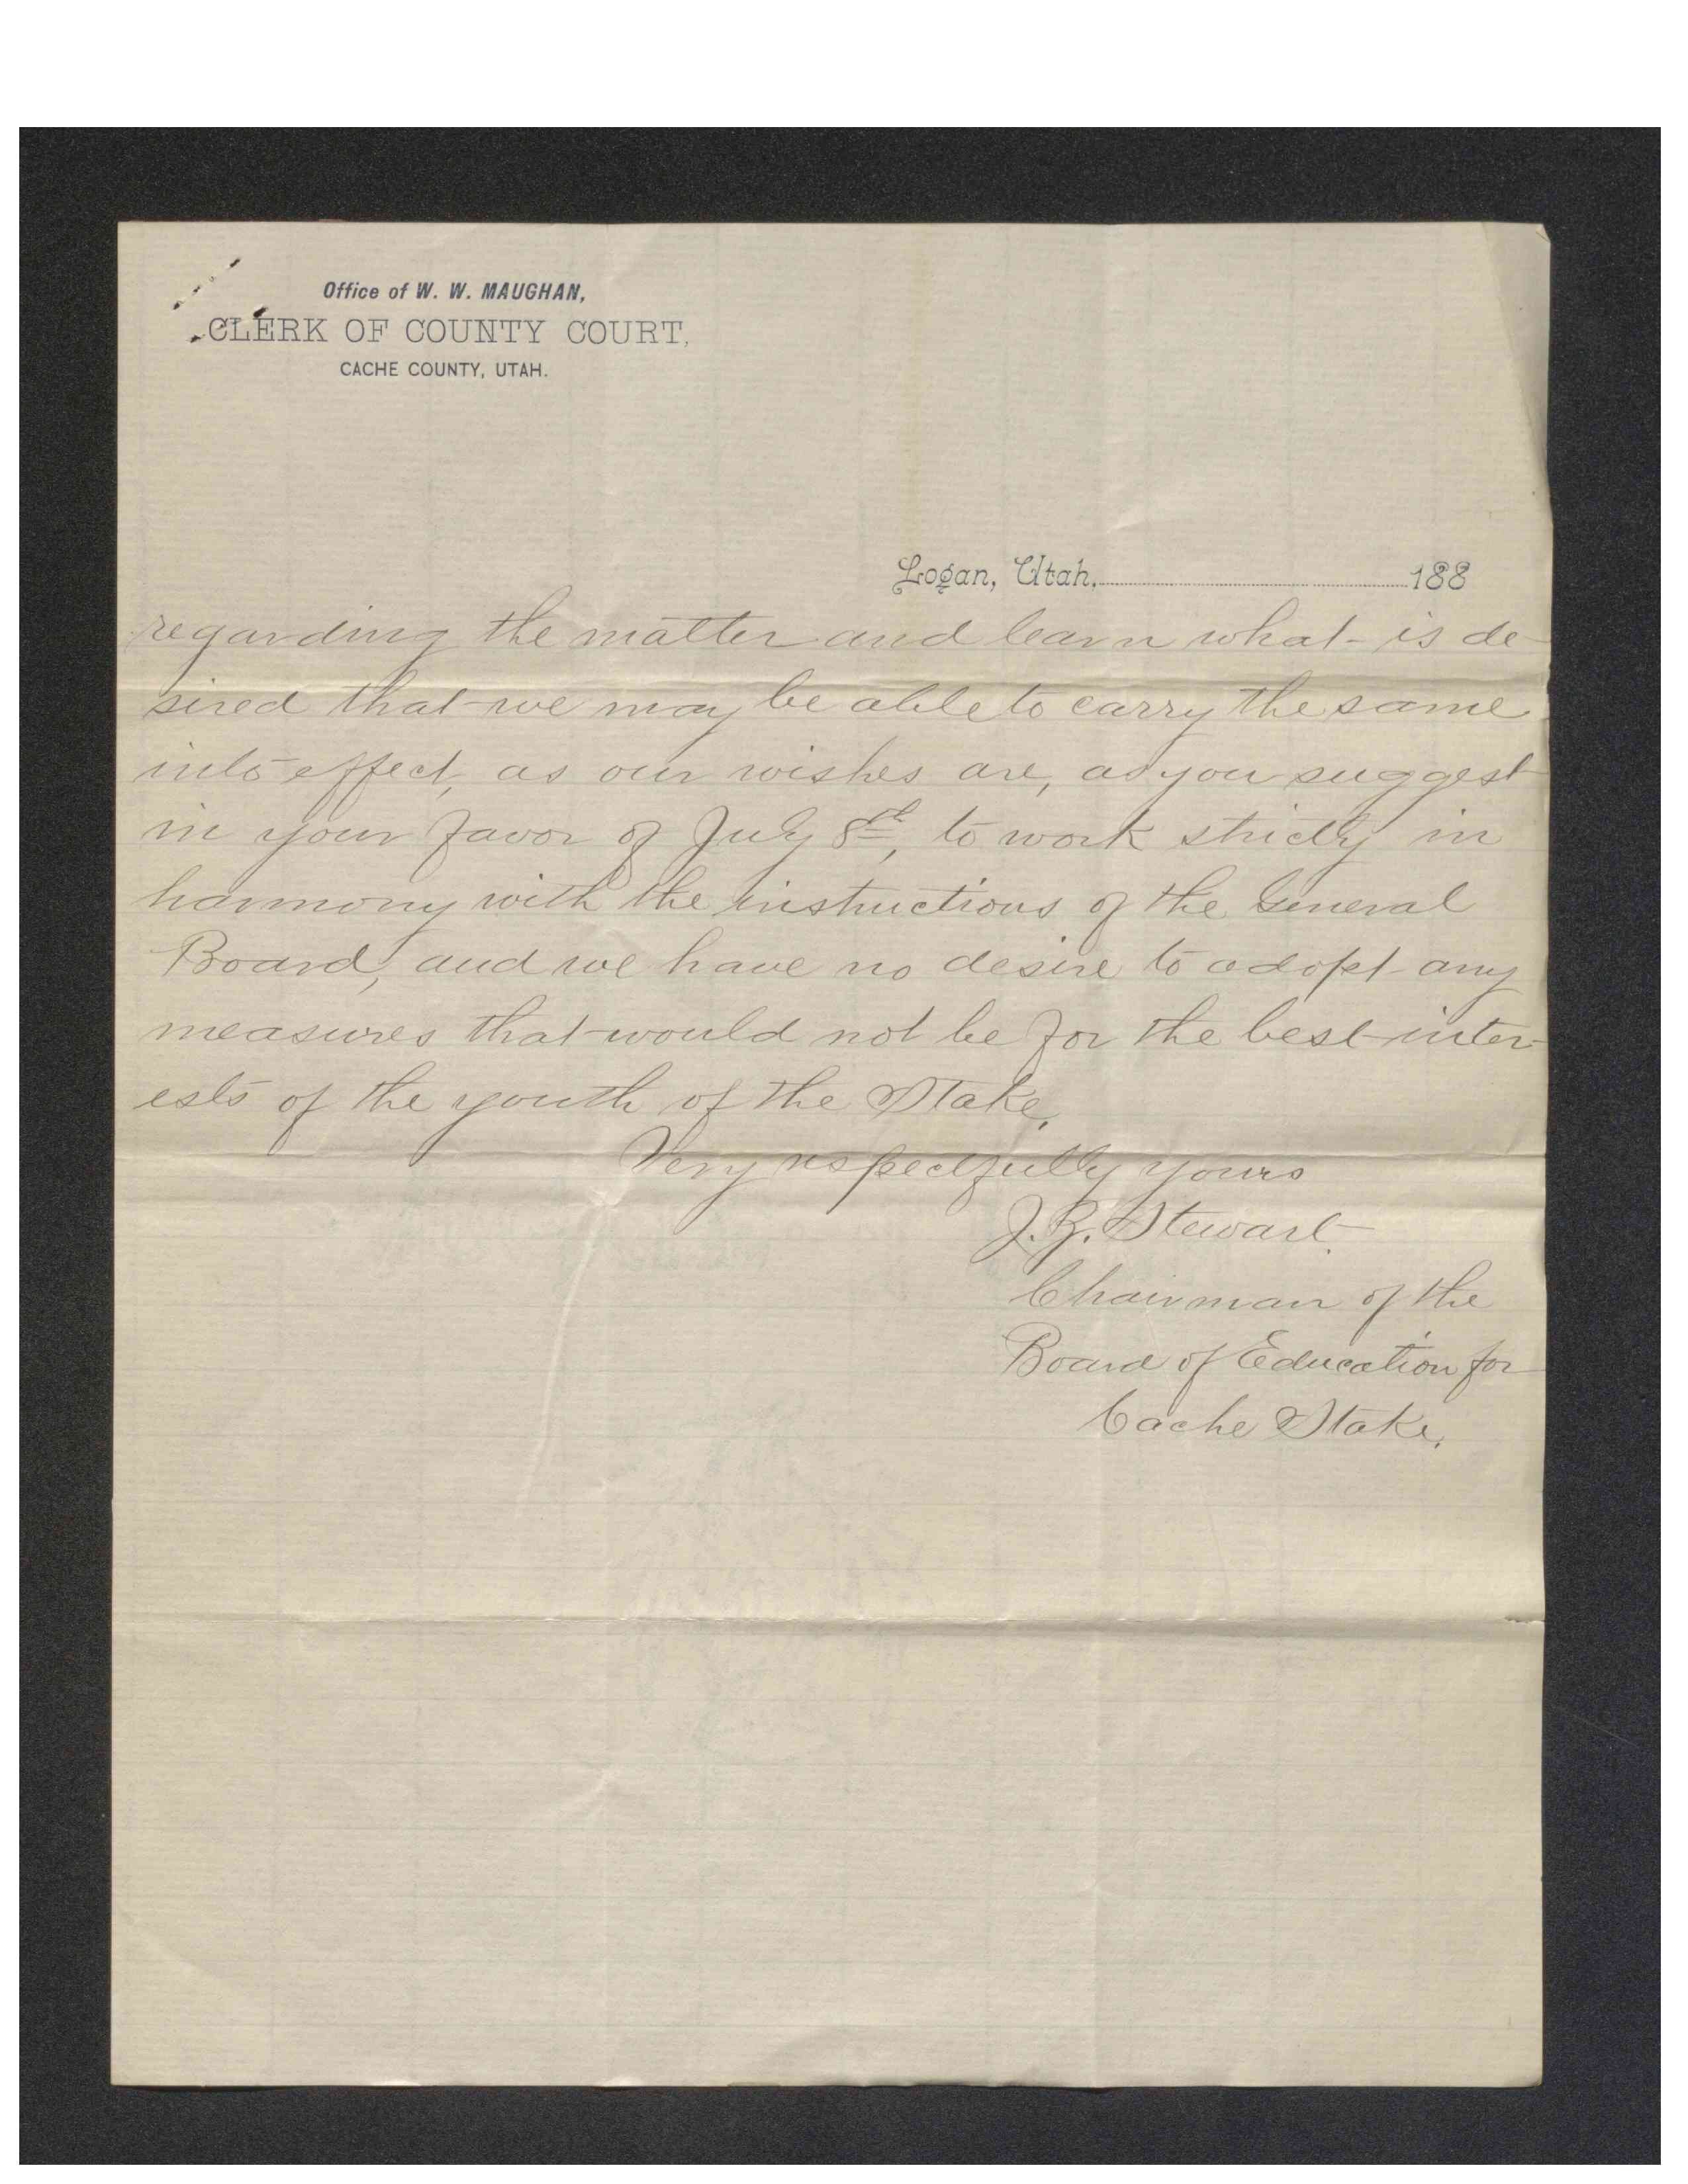 Office of W. W. MAUGHAN,
CLERK OF COUNTY COURT,
CACHE COUNTY, UTAH.
Logan, Utah, 188
regarding the matter and learn what is de-
sired that we may be able to carry the same
into effect, as our wishes are, as you suggest
in your favor of July 8th, to work strictly in
harmony with the instructions of the General
Board, and we have no desire to adopt any
measures that would not be for the best inter-
ests of the youth of the Stake.
Very respectfully yours
J. Z. Stewart.
Chairman of the
Board of Education for
Cache Stake.